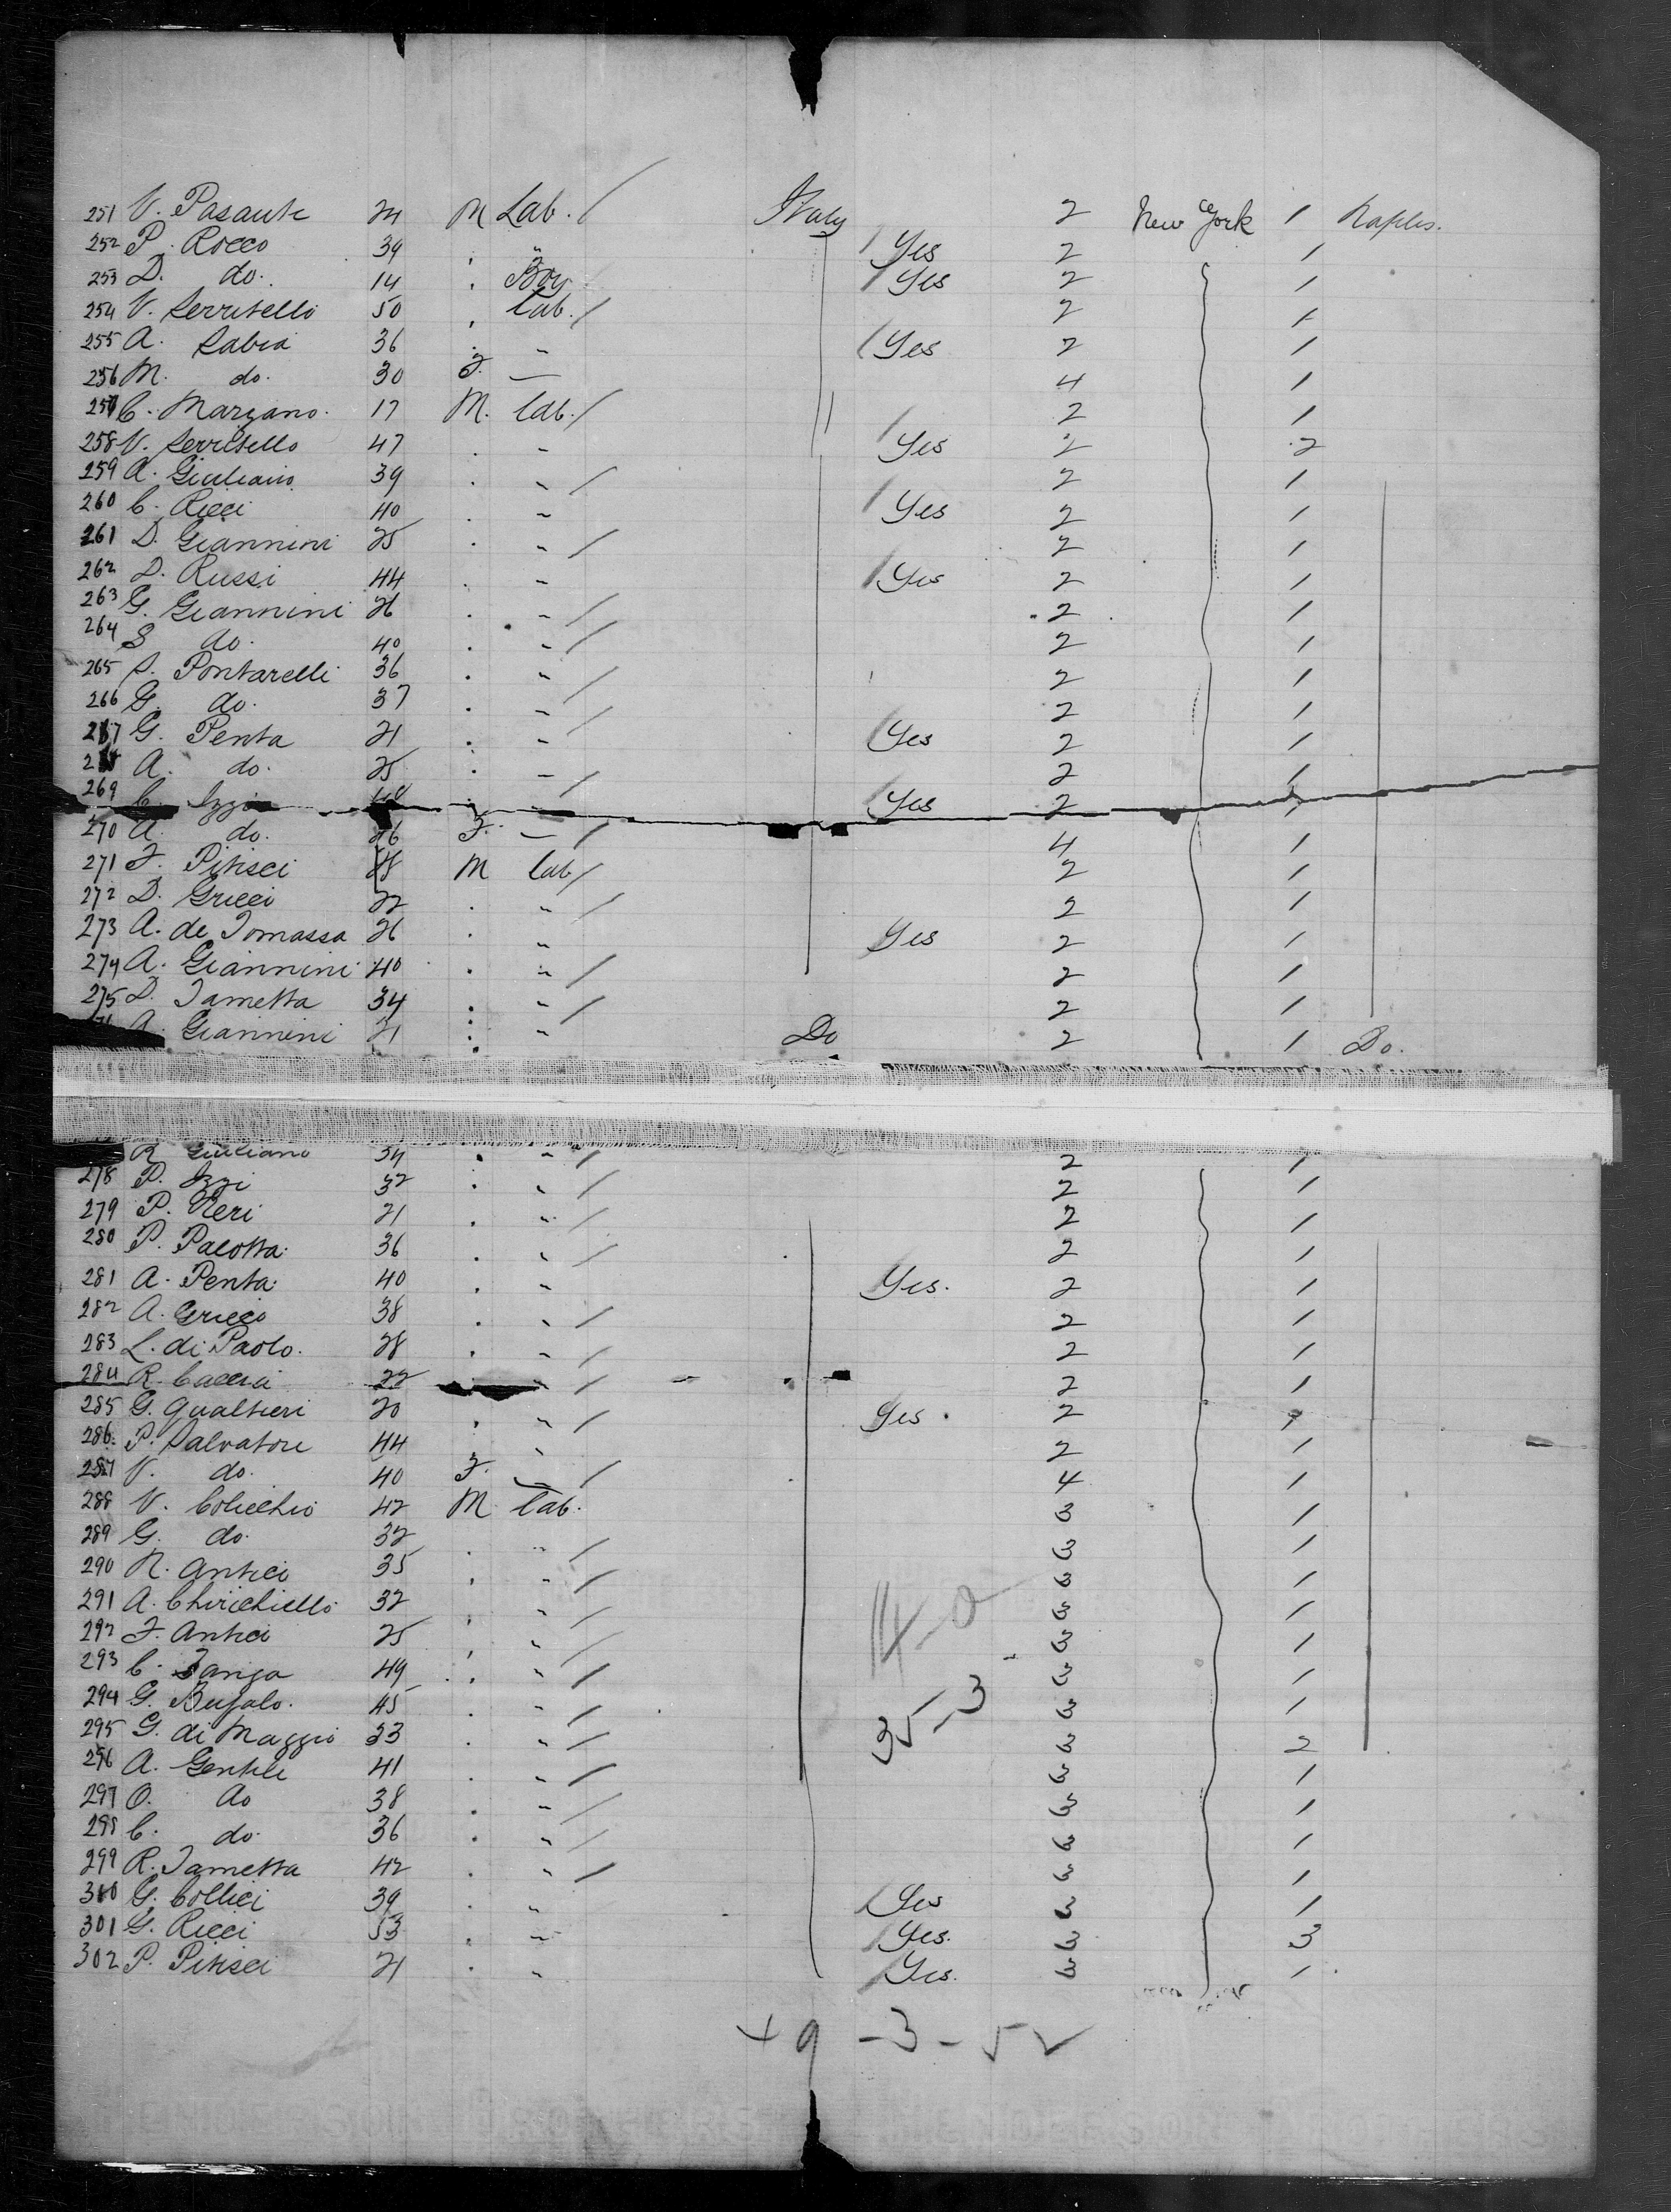 251 V. Pasante 24 M Lab. / Italy 2 New York 1 Naples.
252 P. Rocco 39 . " / Yes 2 1
253 D. do. 14 . Boy / Yes 2 1
254 V. Serritello 50 . Lab. / 2 1
255 A. Sabia 36 . " / Yes 2 1
256 M. do. 30 F. — 4 1
257 C. Marzano. 17 M. Lab. / 2 1
258 V. Serritello 47 . " / Yes 2 2
259 A. Giuliano 39 . " / 2 1
260 C. Ricci 40 . " / Yes 2 1
261 D. Giannini 25 . " / 2 1
262 D. Russi 44 . " / Yes 2 1
263 G. Giannini 26 . " / 2 1
264 S do. 40 . " / 2 1
265 S. Pontarelli 36 . " / 2 1
266 G. do. 37 . " / 2 1
267 G. Penta 21 . " / Yes 2 1
A. do. 25 . " / 2 1
269 C. Izzi . " / Yes 2 1
270 A. do. 26 F. — / 4 1
271 F. Pitisci 28 M Lab / 2 1
272 D. Gricci 22 . " / 2 1
273 A. de Tomassa 26 . " Yes 2 1
274 A. Giannini 40 . " / 2 1
275 D. Iametta 34 . " / 2 1
A. Giannini 21 : " Do 2 1 Do.
R Giuliano 34 . " / 2 1
278 P. Izzi 32 . " / 2 1
279 P. Neri 21 . " / 2 1
280 P. Palotta. 36 . " / 2 1
281 A. Penta. 40 . " / Yes. 2 1
282 A. Gricco 38 . " / 2 1
283 L. di Paolo. 28 . " / 2 1
284 R. Caccia 22 " / 2 1
285 G. Gualtieri 20 . " / Yes. 2 1
286. P. Salvatore 44 . " 2 1
287 V. do. 40 F. — / 4 1
288 V. Colicchio 42 M Lab. 3 1
289 G. do. 32 . " / 3 1
290 N. Antici 35 . " / 3 1
291 A. Chirichiello 32 . " / 3 1
292 F. Antici 25 . " / 3 1
293 C. Zanga 49 . " / 3 1
294 G. Bufalo. 45 . " / 3 1
295 G. di Maggio 33 . " / 3 2
296 A. Gentile 41 . " / 3 1
297 O. do 38 . " / 3 1
298 C. do. 36 . " / 3 1
299 R. Iametta 42 . " / 3 1
300 G. Collici 39 . " / Yes 3 1
301 G. Ricci 53 . " / Yes. 3 3
302 P. Pitisci 21 . " / Yes. 3 1
14-0
35-3
49-3-52